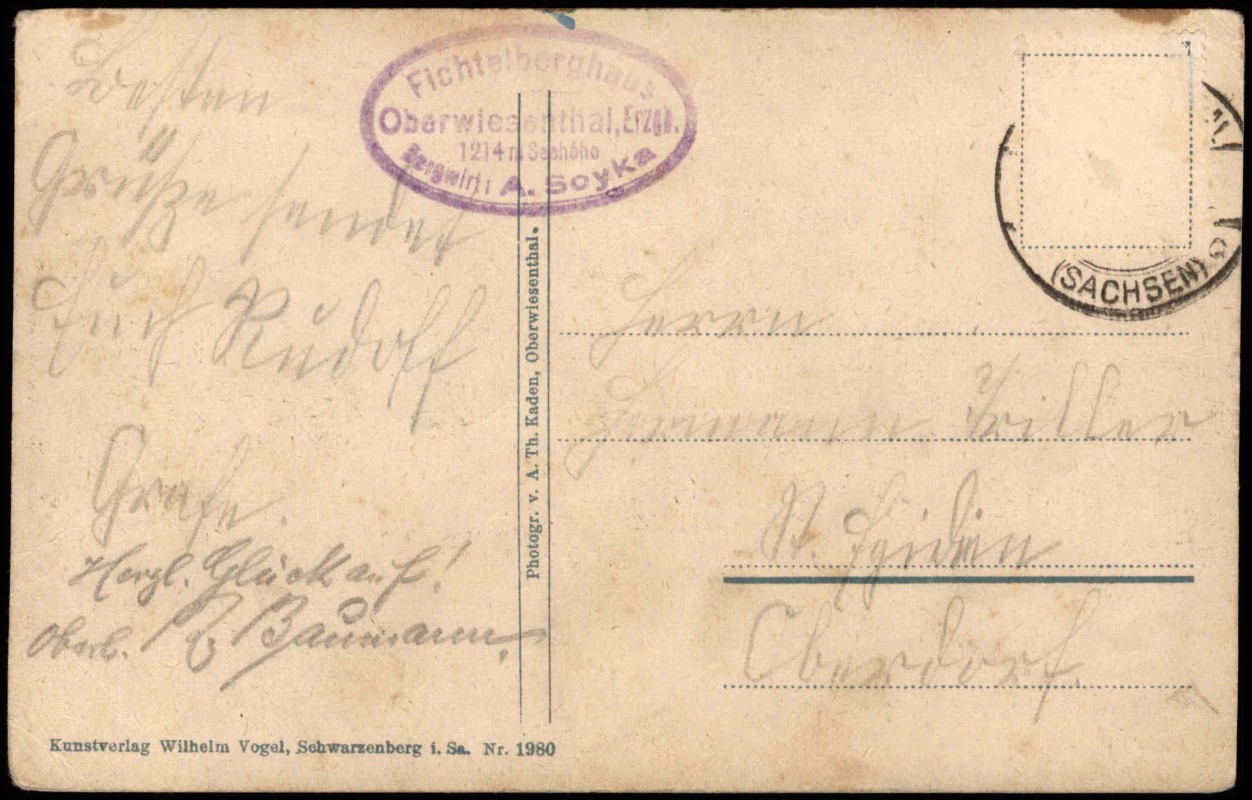 Besten
Grüße sendet
Euch Rudolf
Grafe.
Herzl. Glück auf!
Oberl. Baumann.
Fichtelberghaus
Oberwiesenthal, Erzgb.
1214 m Seehöhe
Bergwirt: A. Soyka
Photogr. v. A. Th. Kaden, Oberwiesenthal.
(SACHSEN)
Herrn
Hermann Triller
St. Egidien
Oberdorf.
Kunstverlag Wilhelm Vogel, Schwarzenberg i. Sa. Nr. 1980